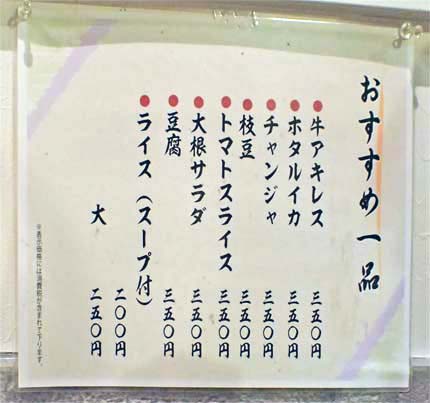 おすすめ一品
●牛アキレス 三五〇円
●ホタルイカ 三五〇円
●チャンジャ 三五〇円
●枝豆 三五〇円
●トマトスライス 三五〇円
●大根サラダ 三五〇円
●豆腐 三五〇円
●ライス（スープ付） 二〇〇円
大 二五〇円
※表示価格には消費税が含まれて下ります。